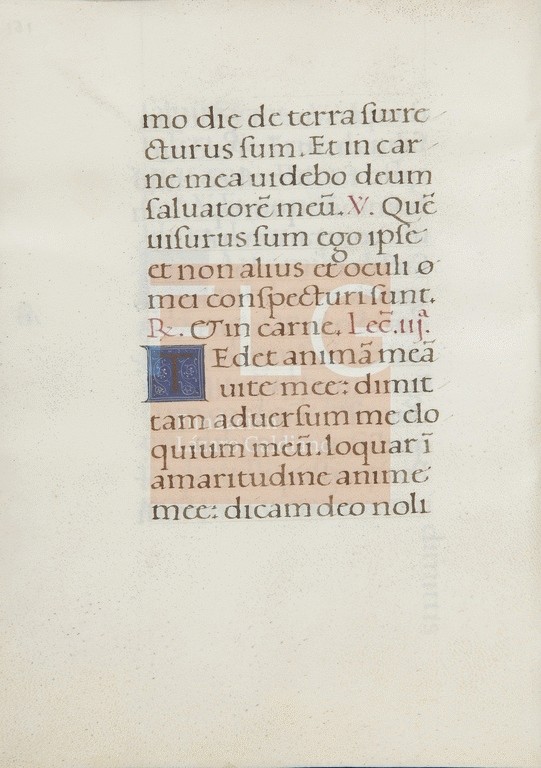 mo die de terra ſurre
cturus ſum. Et in car
ne mea uidebo deum
ſaluatorē meū. V. Quē
uiſurus ſum ego ipſe
et non alius et oculi
mei conſpecturi ſunt.
R. Et in carne. Lec̄. ijª.
TEdet animā meā
uite mee: dimit
tam aduerſum me elo
quium meū. loquar ī
amaritudine anime
mee: dicam deo noli
FLG